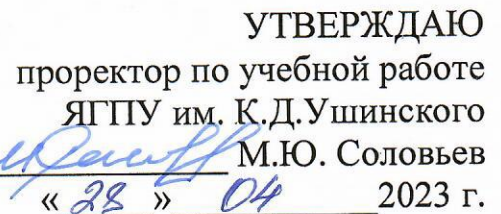 УТВЕРЖДАЮ
проректор по учебной работе
ЯГПУ им. К.Д.Ушинского
М.Ю. Соловьев
« 28 » 04 2023 г.